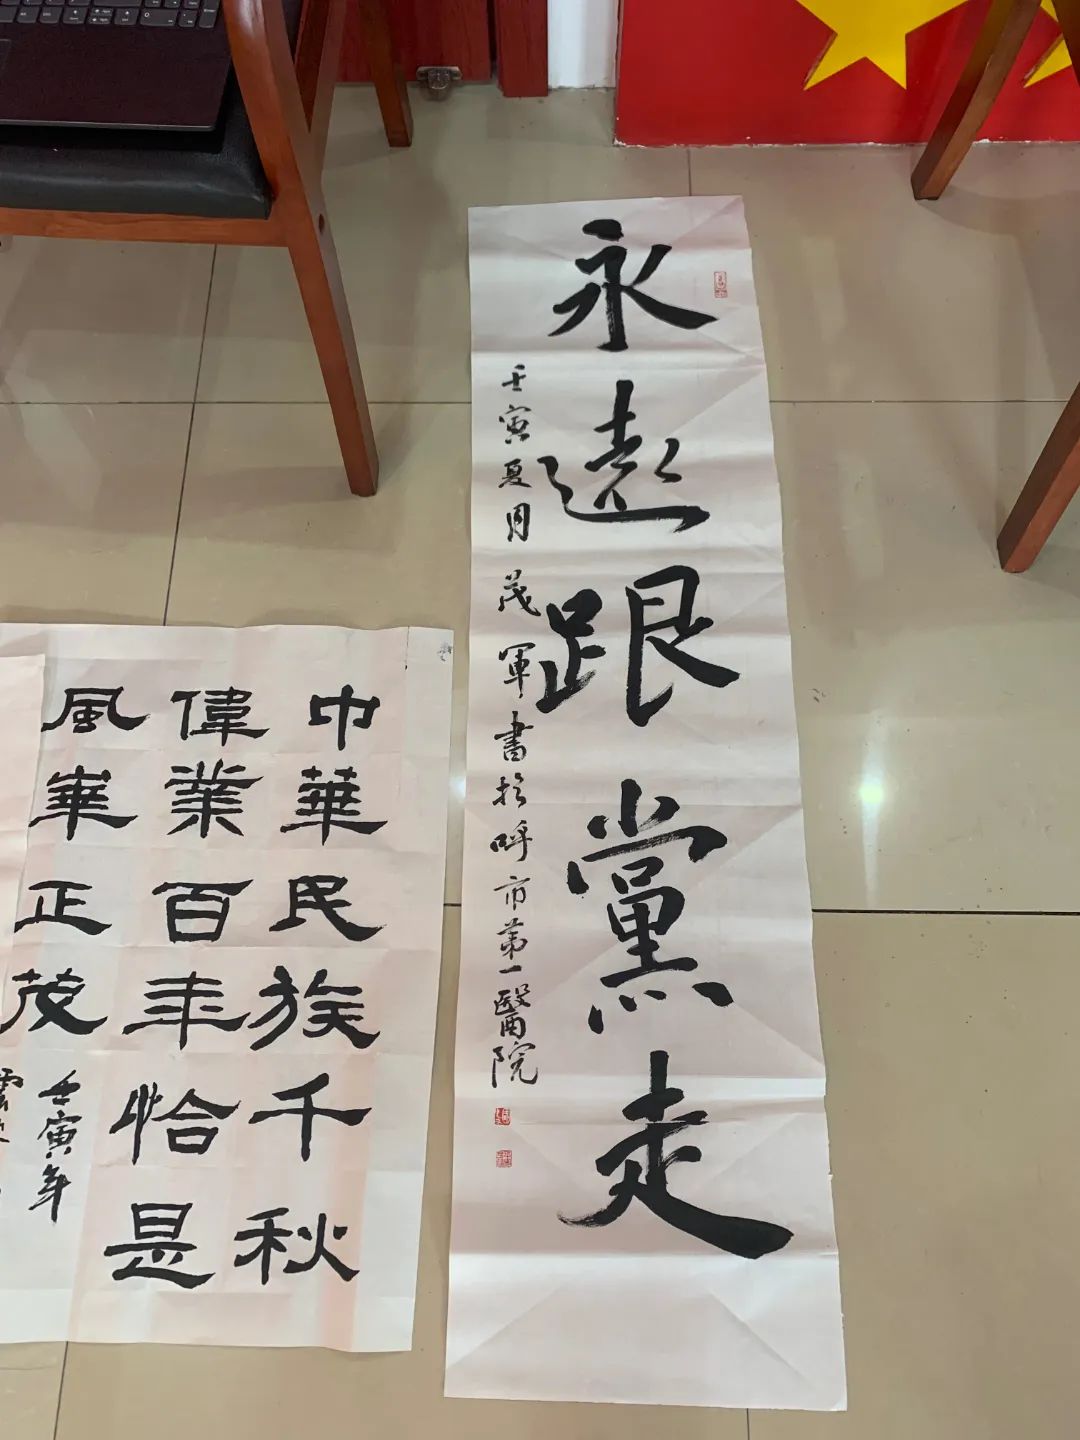 永遠跟黨走
壬寅夏月茂軍書於呼市第一醫院
中華民族千秋
偉業百年恰是
風華正茂
壬寅年